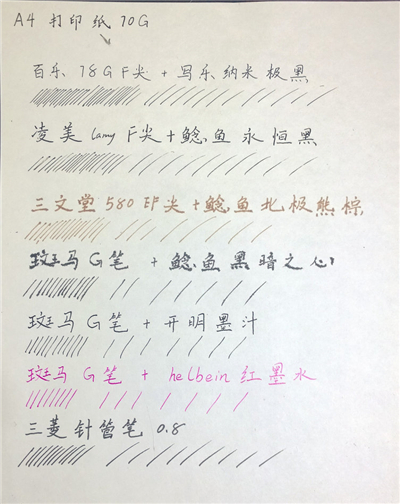 A4 打印纸 70G
百乐 78G F尖 + 写乐纳米极黑
凌美 lamy F尖 + 鲶鱼永恒黑
三文堂 580 EF尖 + 鲶鱼北极熊棕
斑马 G笔 + 鲶鱼黑暗之心
斑马 G笔 + 开明墨汁
斑马 G笔 + helbein 红墨水
三菱针管笔 0.8